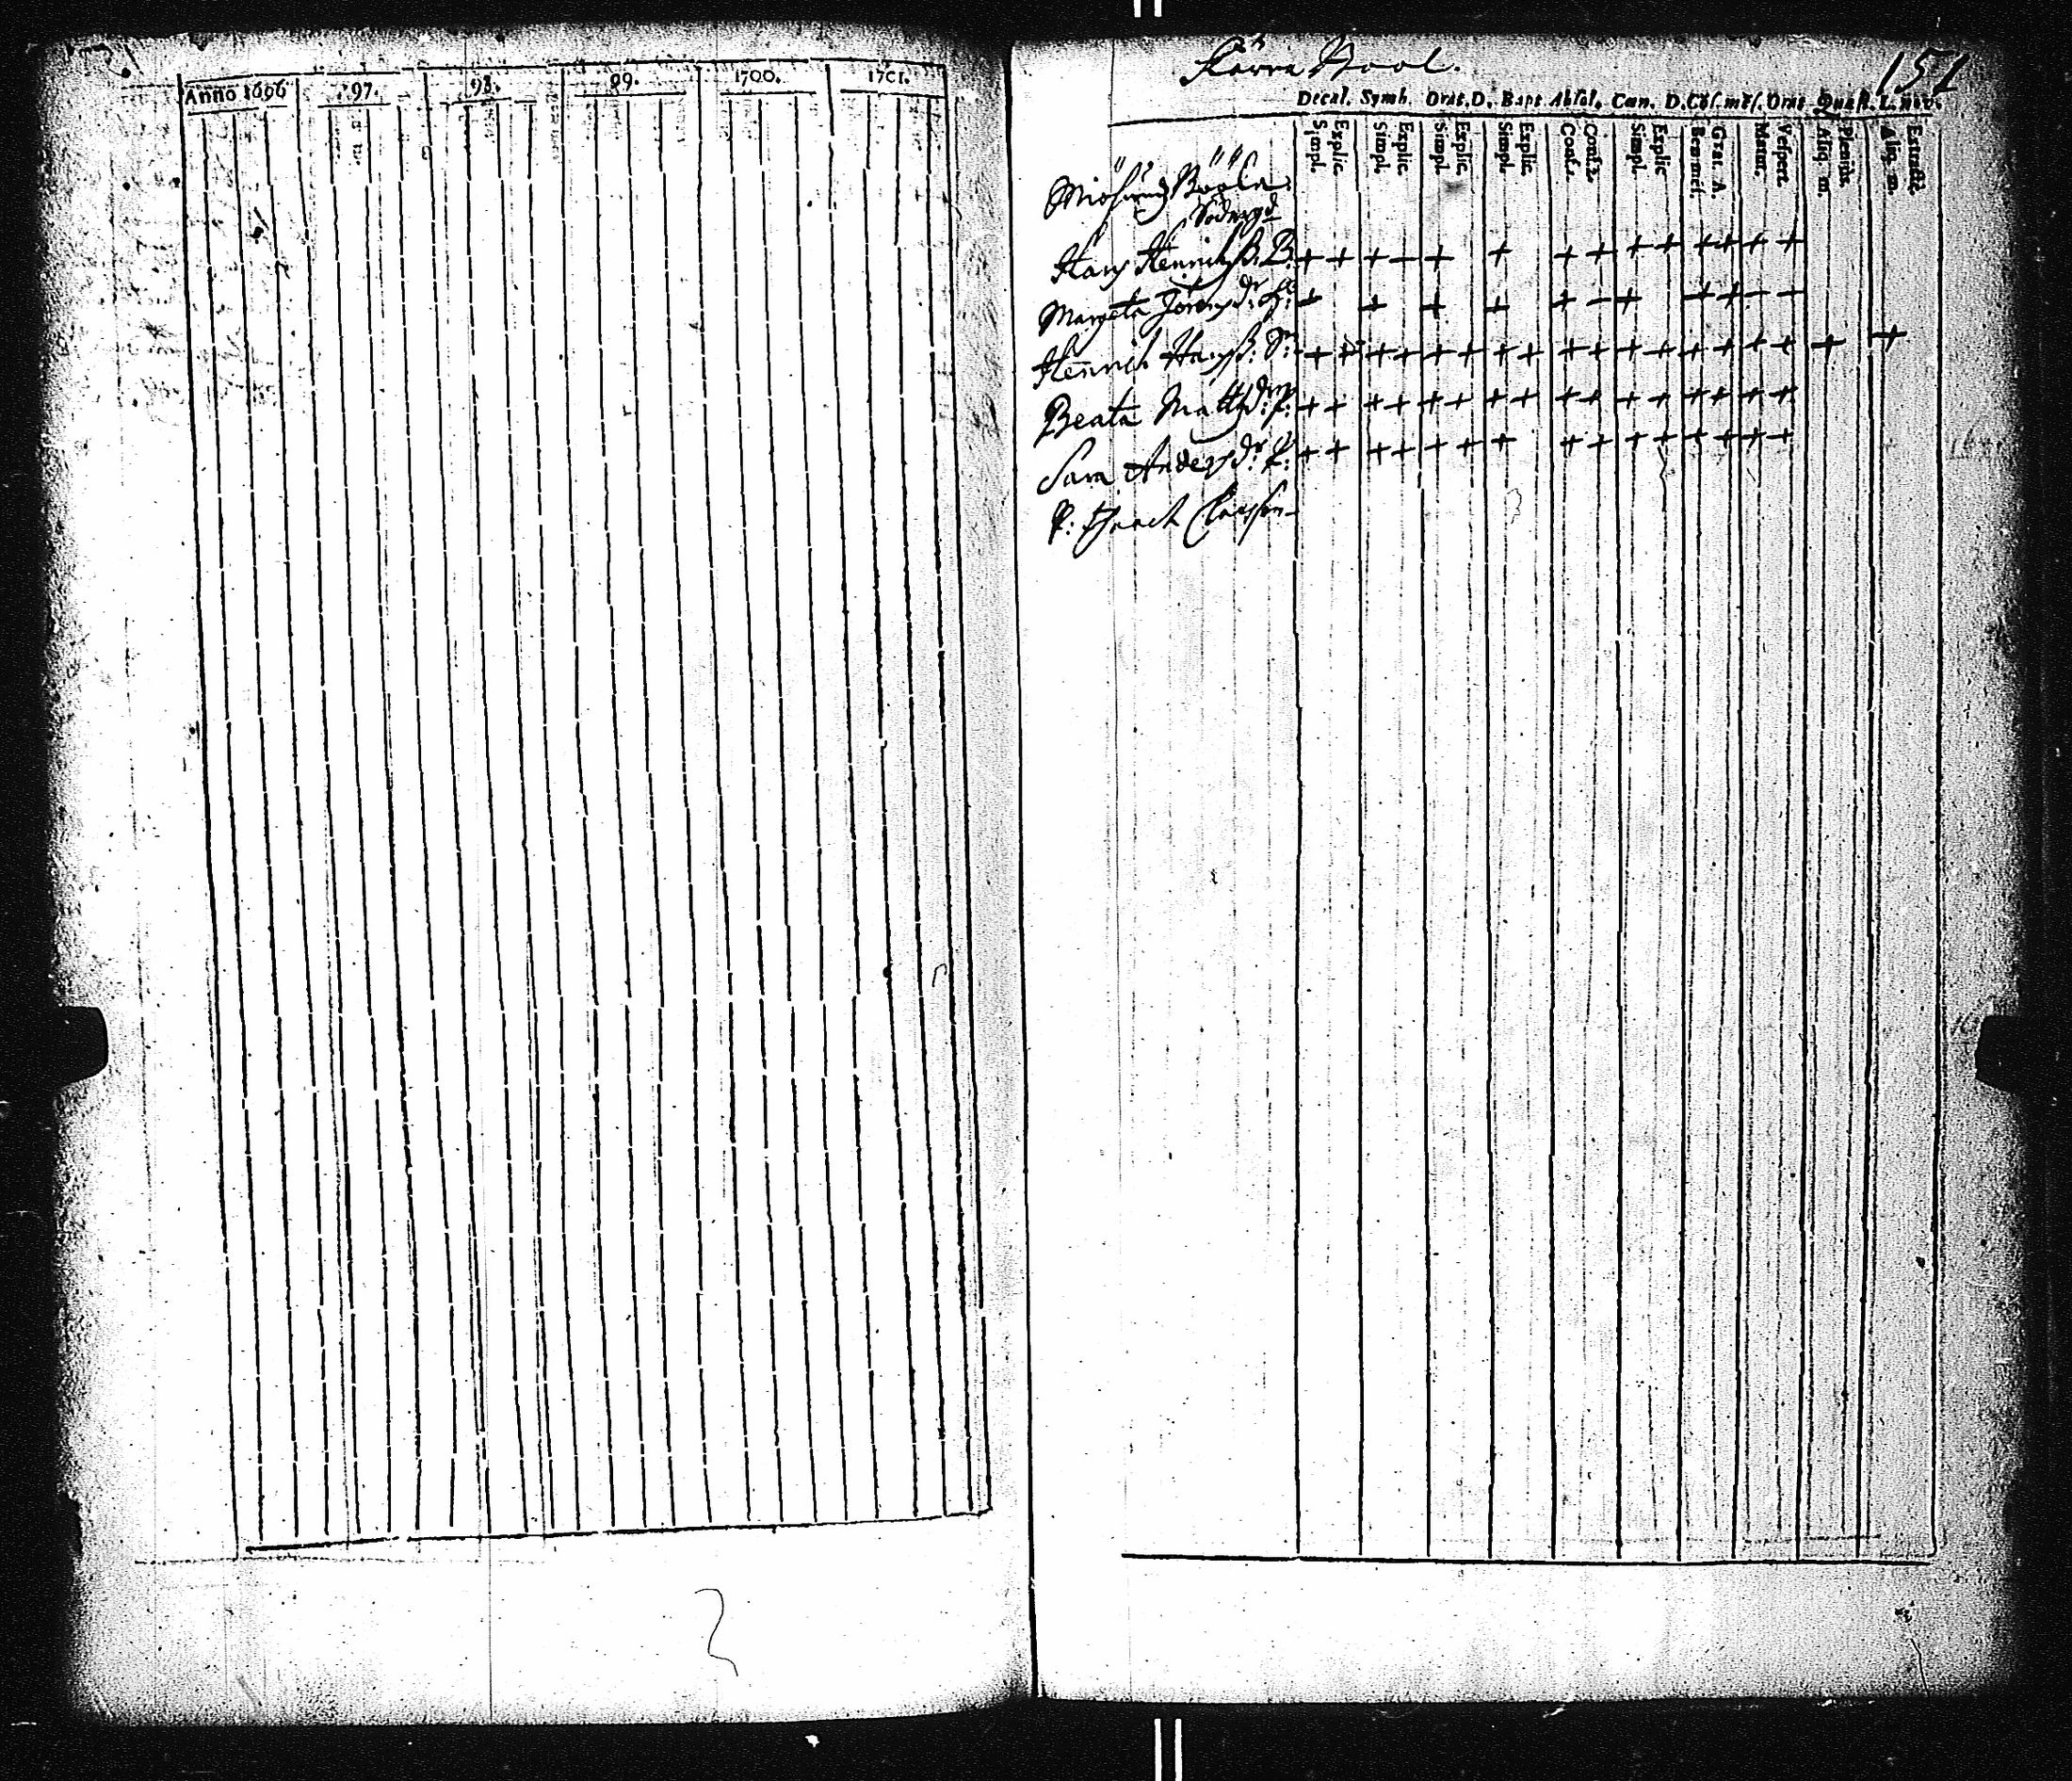 Anno 1696 97. 98. 99. 1700. 1701.
Kärra Bool.
151
Decal. Symb. Orat. D. Bapt Absol. Cœn. D. Cõf. mẽs. Orat. Quæst. L. nov.
Simpl. Explic. Simpl. Explic. Simpl. Explic. Simpl. Explic. Conf. 1. Conf. 2. Simpl. Explic Ben. mẽs. Grat. A. Matut. Vespert. Aliq. m. Plenius. Aliq. m. Extractẽ
Böhle
Södergd
Hans Henrichß. B. + + + – + + + + + + + + + +
Margeta Jörensdr. H: + + + + + – + + + – –
Henrich Hansß. Sn: + + + + + + + + + + + + + + + + + +
Beata Mattsdr. P: + + + + + + + + + + + + + + + +
Sara Andersdr. P: + + + + + + + + + + + + + + +
P: Claesson